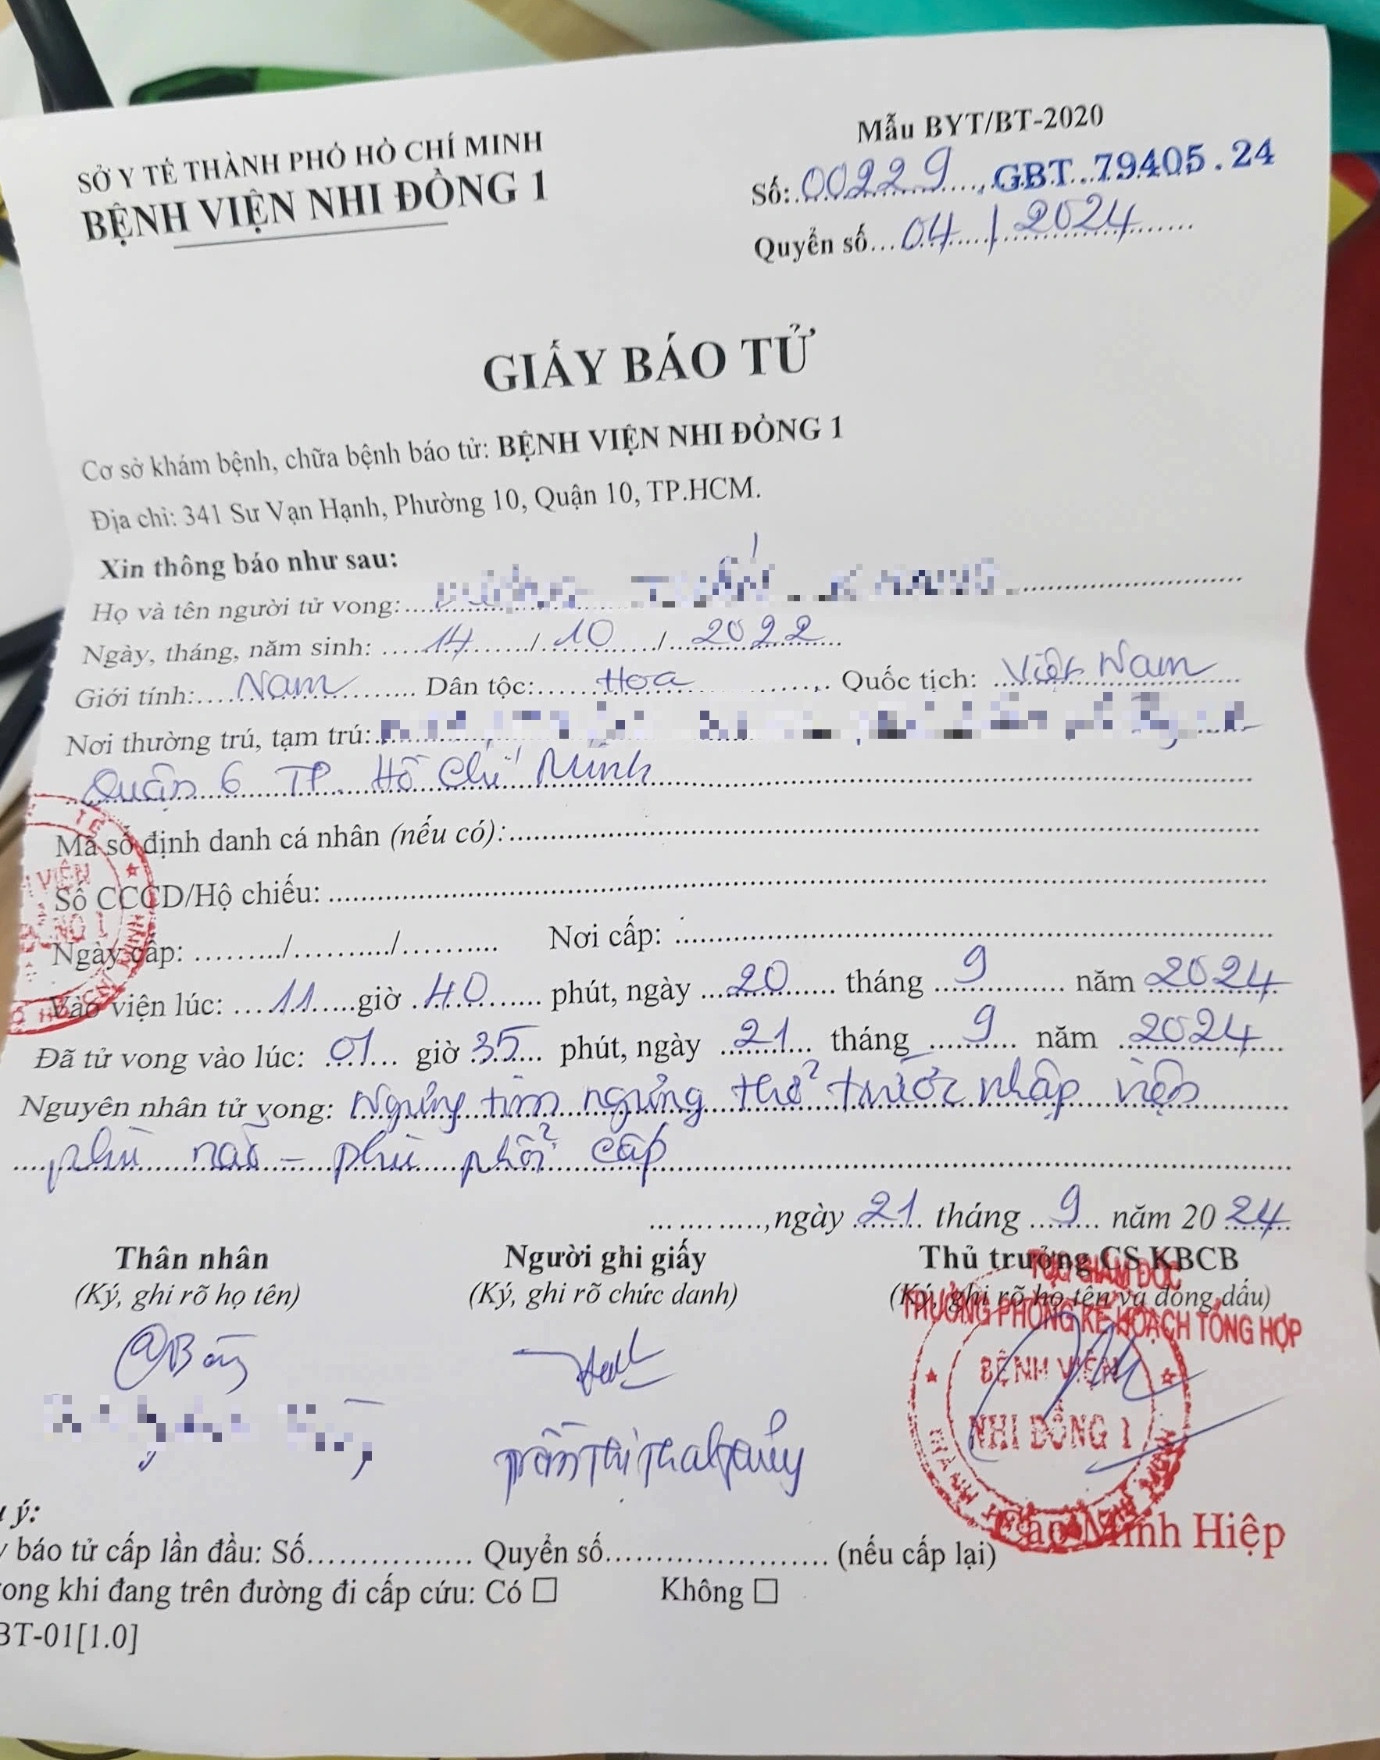 SỞ Y TẾ THÀNH PHỐ HỒ CHÍ MINH
BỆNH VIỆN NHI ĐỒNG 1
Mẫu BYT/BT-2020
Số: 00229, GBT 79405.24
Quyển số 04 / 2024
GIẤY BÁO TỬ
Cơ sở khám bệnh, chữa bệnh báo tử: BỆNH VIỆN NHI ĐỒNG 1
Địa chỉ: 341 Sư Vạn Hạnh, Phường 10, Quận 10, TP.HCM.
Xin thông báo như sau:
Họ và tên người tử vong:
Ngày, tháng, năm sinh: 14 / 10 / 2022
Giới tính: Nam Dân tộc: Hoa Quốc tịch: Việt Nam
Nơi thường trú, tạm trú:
Quận 6 TP. Hồ Chí Minh
Mã số định danh cá nhân (nếu có):
Số CCCD/Hộ chiếu:
Ngày cấp: ......../........../.......... Nơi cấp:
Vào viện lúc: 11 giờ 40 phút, ngày 20 tháng 9 năm 2024
Đã tử vong vào lúc: 01 giờ 35 phút, ngày 21 tháng 9 năm 2024
Nguyên nhân tử vong: Ngưng tim ngưng thở trước nhập viện
phù não - phù phổi cấp
, ngày 21 tháng 9 năm 2024
Thân nhân Người ghi giấy Thủ trưởng CS KBCB
(Ký, ghi rõ họ tên) (Ký, ghi rõ chức danh) (Ký, ghi rõ họ tên và đóng dấu)
TRƯỞNG PHÒNG KẾ HOẠCH TỔNG HỢP
BỆNH VIỆN
NHI ĐỒNG 1
Trần Thị
Cao Minh Hiệp
ý:
báo tử cấp lần đầu: Số Quyển số (nếu cấp lại)
ong khi đang trên đường đi cấp cứu: Có ☐ Không ☐
BT-01[1.0]